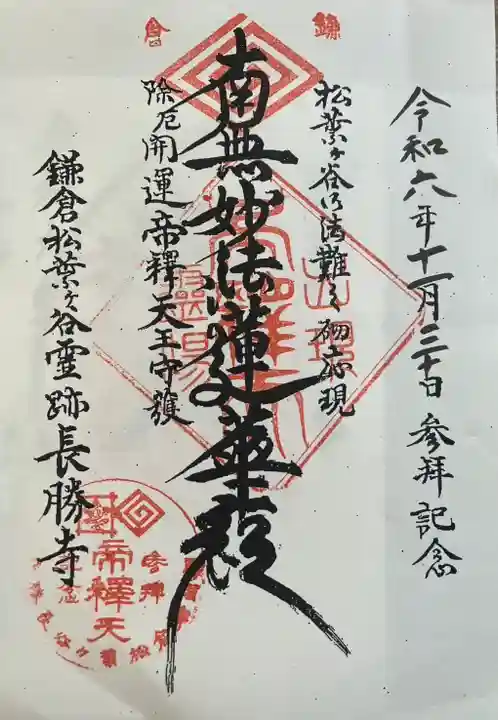 鎌倉
令和六年十一月三十日参拝記念
松葉ヶ谷御法難之砌示現
南無妙法蓮華経
除厄開運帝釋天王守護
鎌倉松葉ヶ谷霊跡長勝寺
出現
霊場
参拝
帝釋天